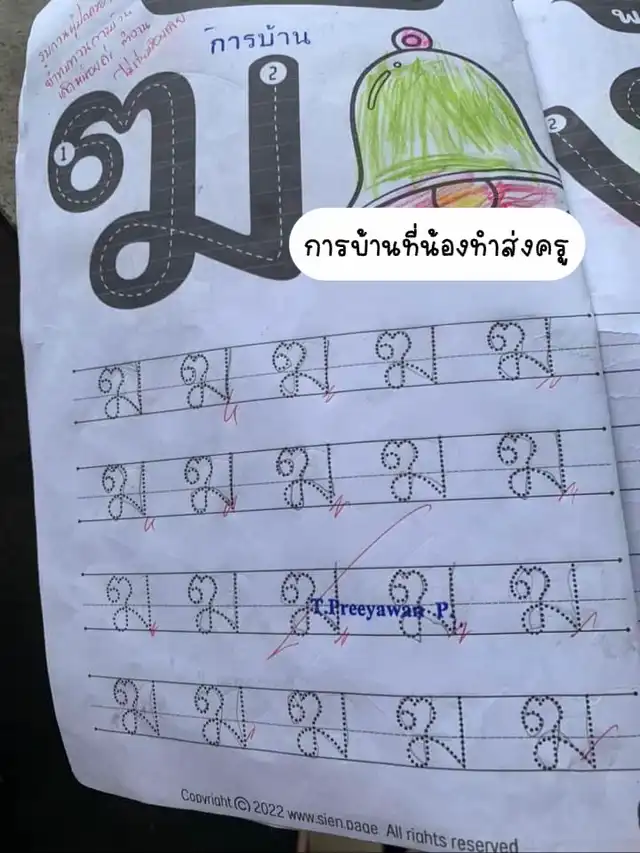 การบ้าน
1
2
ฆ
2
การบ้านที่น้องทำส่งครู
ฆ ฆ ฆ ฆ ฆ
ฆ ฆ ฆ ฆ ฆ
ฆ ฆ ฆ ฆ ฆ
T.Preeyawan .P.
ฆ ฆ ฆ ฆ ฆ
Copyright © 2022 www.sien.page All rights reserved